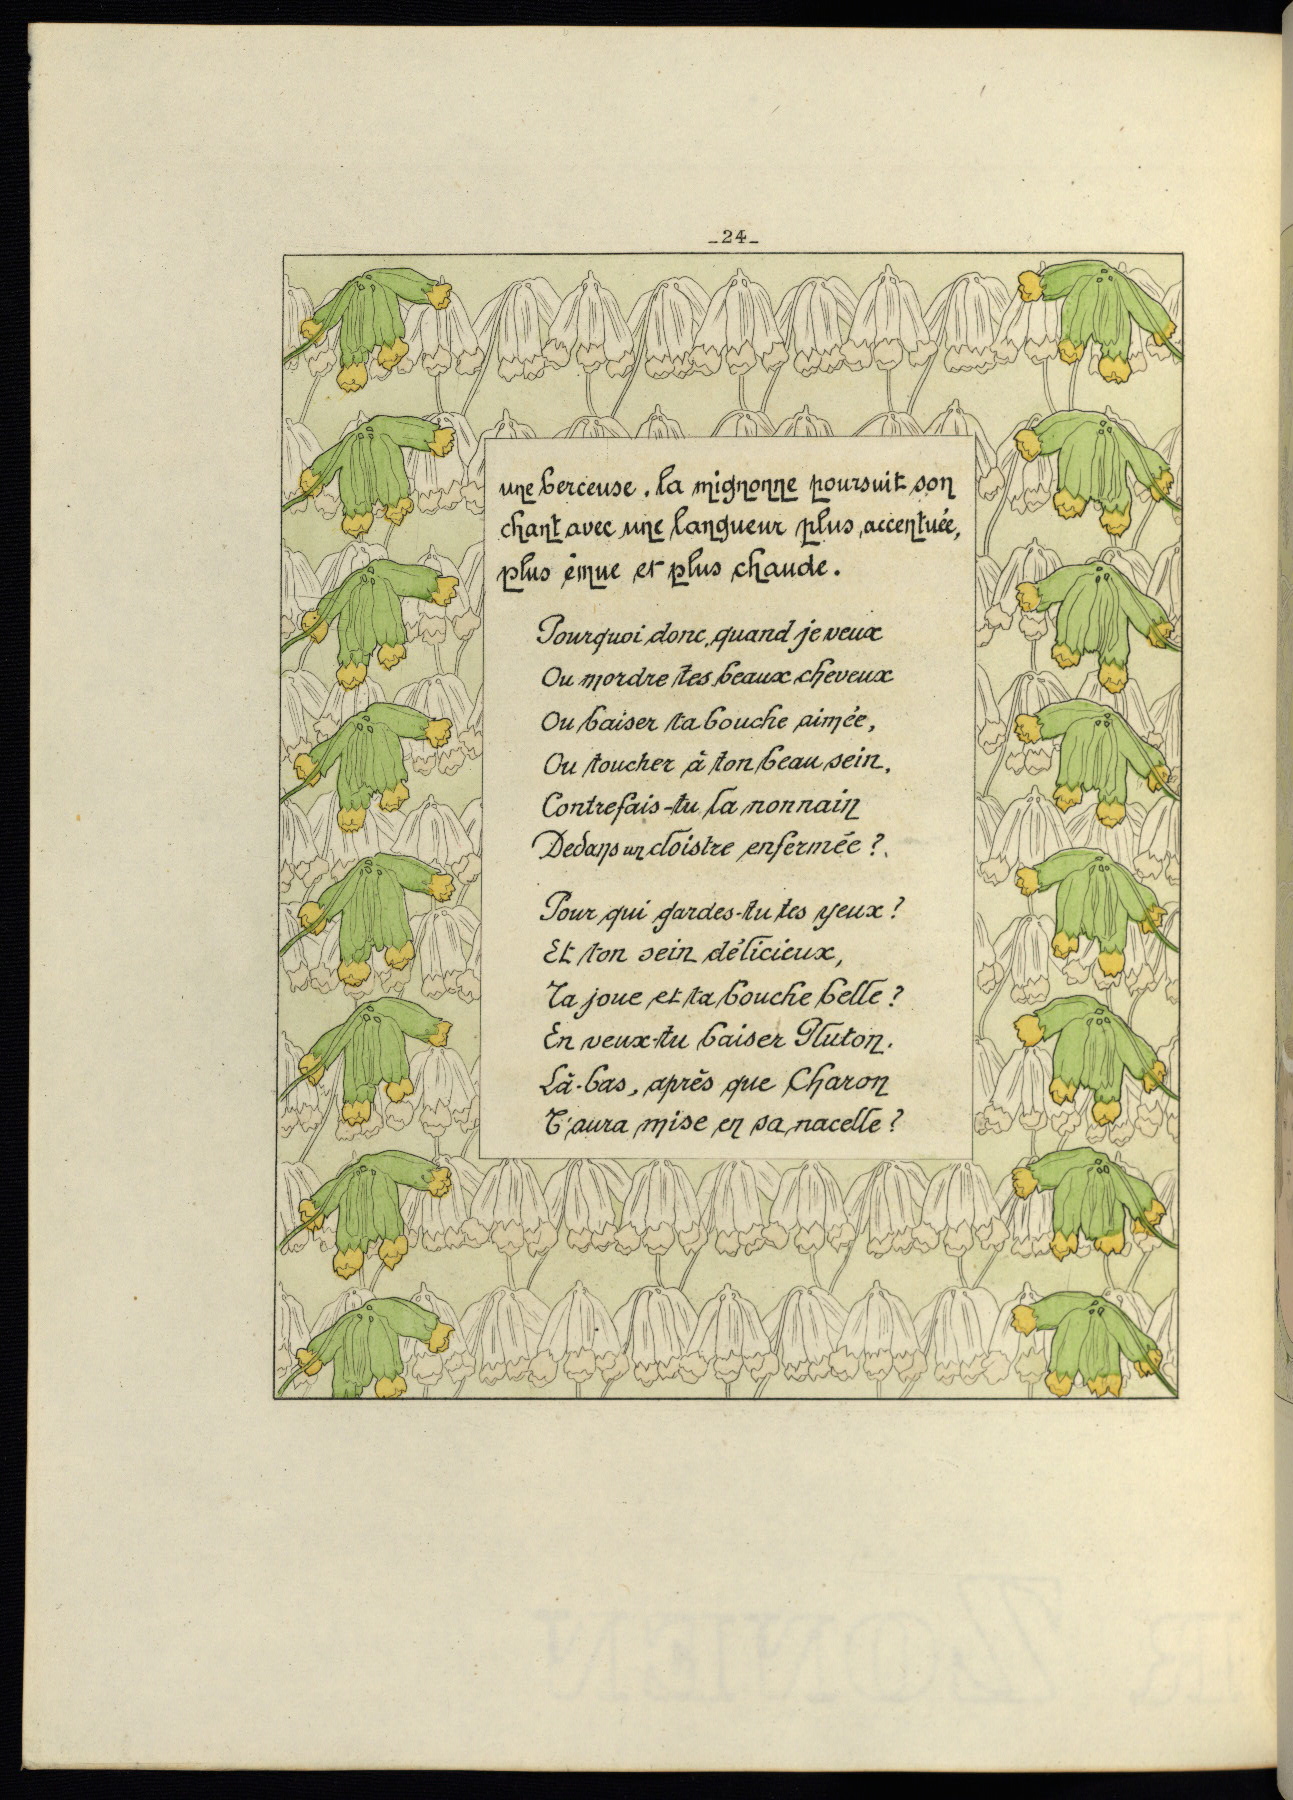 _24_
une berceuse. la mignonne poursuit son
chant avec une langueur plus accentuée,
plus émue et plus chaude.
Pourquoi donc, quand je veux
Ou mordre tes beaux cheveux
Ou baiser ta bouche aimée,
Ou toucher à ton beau sein,
Contrefais-tu la nonnain
Dedans un cloistre enfermée ?
Pour qui gardes-tu tes yeux ?
Et ton sein délicieux,
Ta joue et ta bouche belle ?
En veux-tu baiser Pluton.
Là-bas, après que Charon
T'aura mise en sa nacelle ?